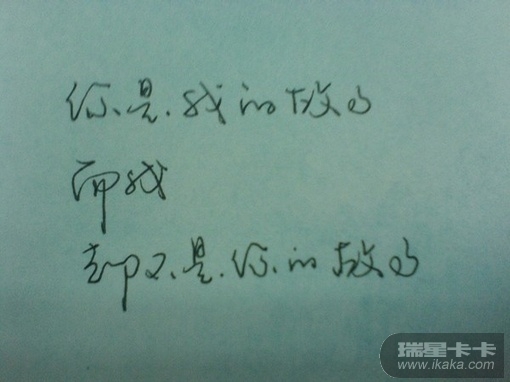 你是我的
而我
却不是你的
瑞星卡卡
www.ikaka.com